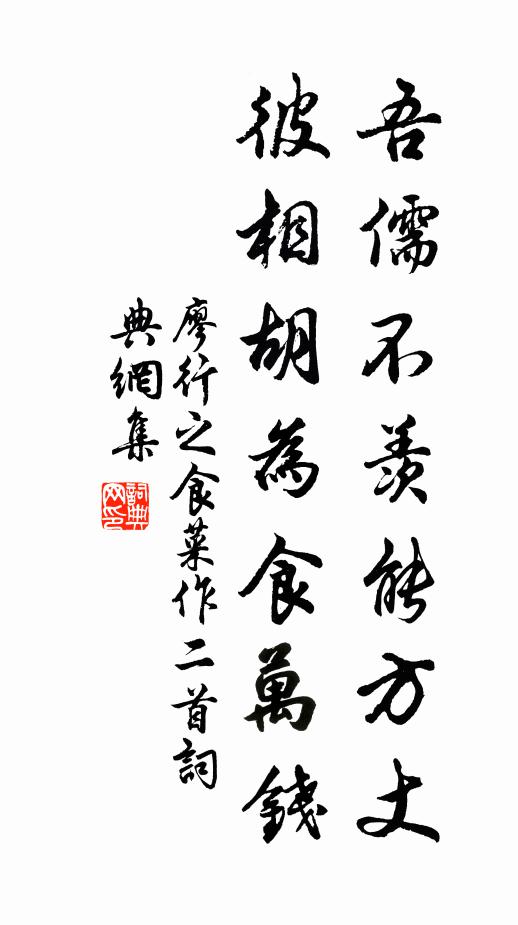 吾儒不羨能方丈
彼相胡為食萬錢
廖行之食菜作二首詞
典網集
詞典网印